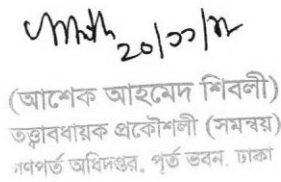 ২০/১১/২
(আশেক আহমেদ শিবলী)
তত্ত্বাবধায়ক প্রকৌশলী (সমন্বয়)
গণপূর্ত অধিদপ্তর, পূর্ত ভবন, ঢাকা